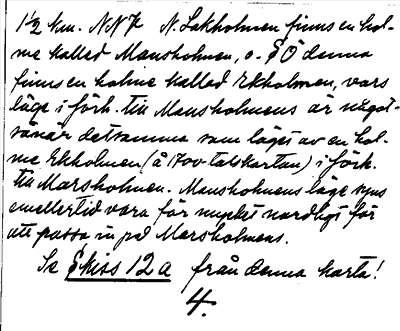 1½ km. NNV N. Lakholmen finns en hol-
me kallad Mansholmen, o. SÖ denna
finns en holme kallad Ekholmen, vars
läge i förh. till Mansholmens är något-
sånär detsamma som läget av en hol-
me Ekholmen (å 1700-talskartan) i förh.
till Marsholmen. Mansholmens läge syns
emellertid vara för mycket nordligt för
att passa in på Marsholmens.
Se Skiss 12a från denna karta!
4.